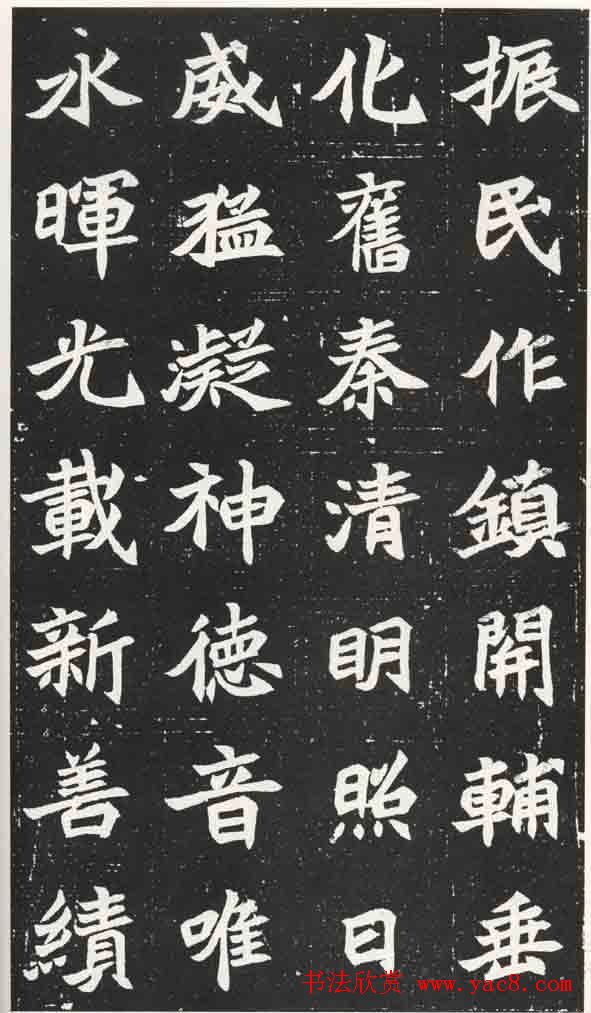 振民作鎮開輔垂
化舊秦清明照日
威猛凝神德音唯
永暉光載新善績
书法欣赏 www.yac8.com